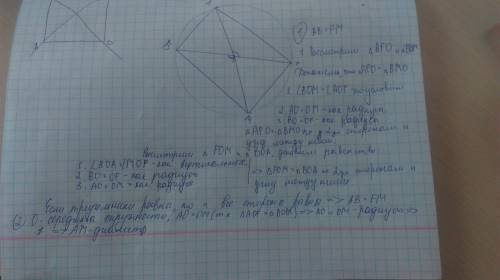 ① AB = FM
1. Рассмотрим △ AFO и △ BOM
Докажем, что △AFO = △BMO
1. ∠BOM = ∠AOF по условию
2. AO = OM - как радиусы
3. BO = OF - как радиусы
△ AFO = △ BMO по 2-ум сторонам и
углу между ними.
Рассмотрим △ FOM и △ BOA, докажем равенство
1. ∠BOA = ∠MOF - как вертикальные
2. BO = OF - как радиусы
3. AO = OM - как радиусы
=> △FOM = △BOA по 2-ум сторонам и
углу между ними
Если треугольники равны, то и все стороны равны => AB = FM
② O - середина окружности, AO = OM (т.к △AOF = △BOM) => AO и OM - радиусы =>
=> AM - диаметр